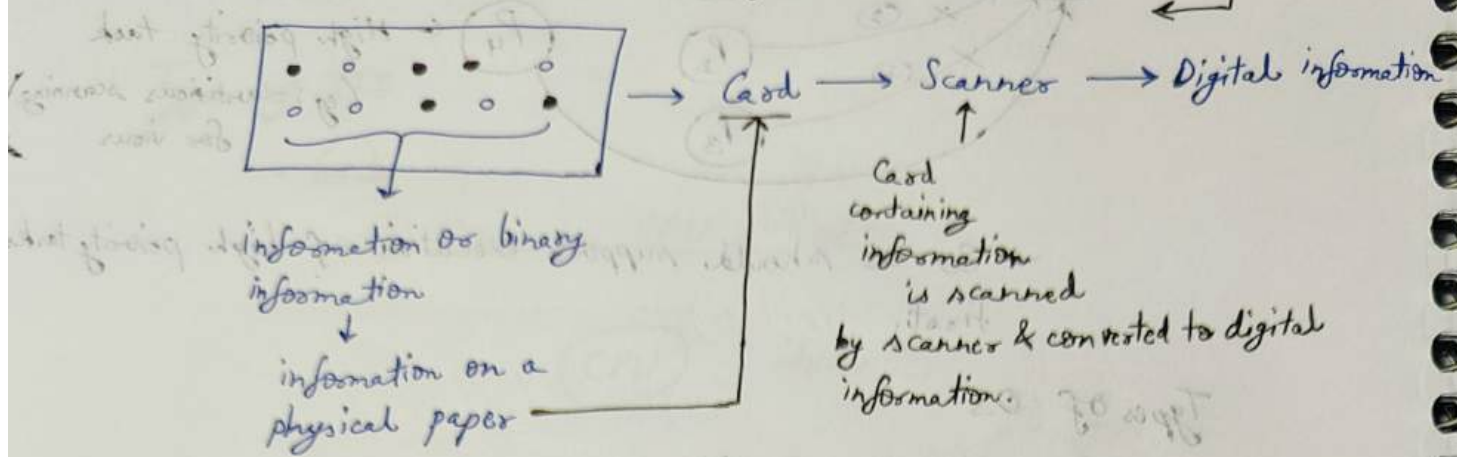 Card → Scanner → Digital information
information or binary
information
↓
information on a
physical paper
Card
containing
information
is scanned
by scanner & converted to digital
information.